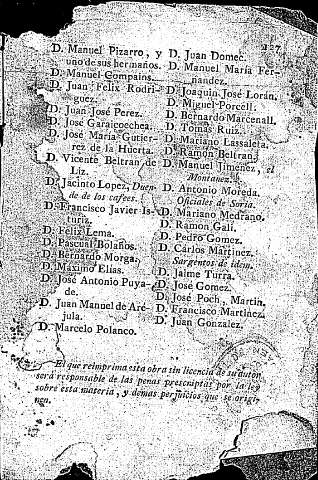 127
D. Manuel Pizarro, y
uno de sus hermanos.
D. Manuel Compains.
D. Juan Felix Rodri-
guez.
D. Juan José Perez.
D. José Garaicoechea.
D. José María Gutier-
rez de la Huerta.
D. Vicente Beltran de
Liz.
D. Jacinto Lopez, Duen-
de de los cafees.
D. Francisco Javier Is-
turiz.
D. Felix Lema.
D. Pascual Bolaños.
D. Bernardo Morga.
D. Máximo Elias.
D. José Antonio Puya-
de.
D. Juan Manuel de Aré-
jula.
D. Marcelo Polanco.
D. Juan Domec.
D. Manuel María Fer-
nandez.
D. Joaquin José Lorán.
D. Miguel Porcell.
D. Bernardo Marcenall.
D. Tomás Ruiz.
D. Mariano Lassaleta.
D. Ramon Beltran.
D. Manuel Jimenez, el
Montanez.
D. Antonio Moreda.
Oficiales de Soria.
D. Mariano Medrano.
D. Ramon Galí.
D. Pedro Gomez.
D. Carlos Martinez.
Sargentos de idem.
D. Jaime Turra.
D. José Gomez.
D. José Poch, Martin.
D. Francisco Martinez.
D. Juan Gonzalez.
El que reimprima esta obra sin licencia de su autor
será responsable de las penas prescriptas por la ley
sobre esta materia, y demas perjuicios que se origi-
nen.